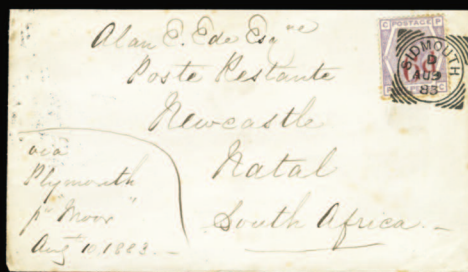 Alan E. Ede Esqre
Poste Restante
Newcastle
Natal
South Africa
via
Plymouth
pr "Moor"
Aug 10. 1883
C POSTAGE P
6d
P C
SIDMOUTH
D
AU 9
83